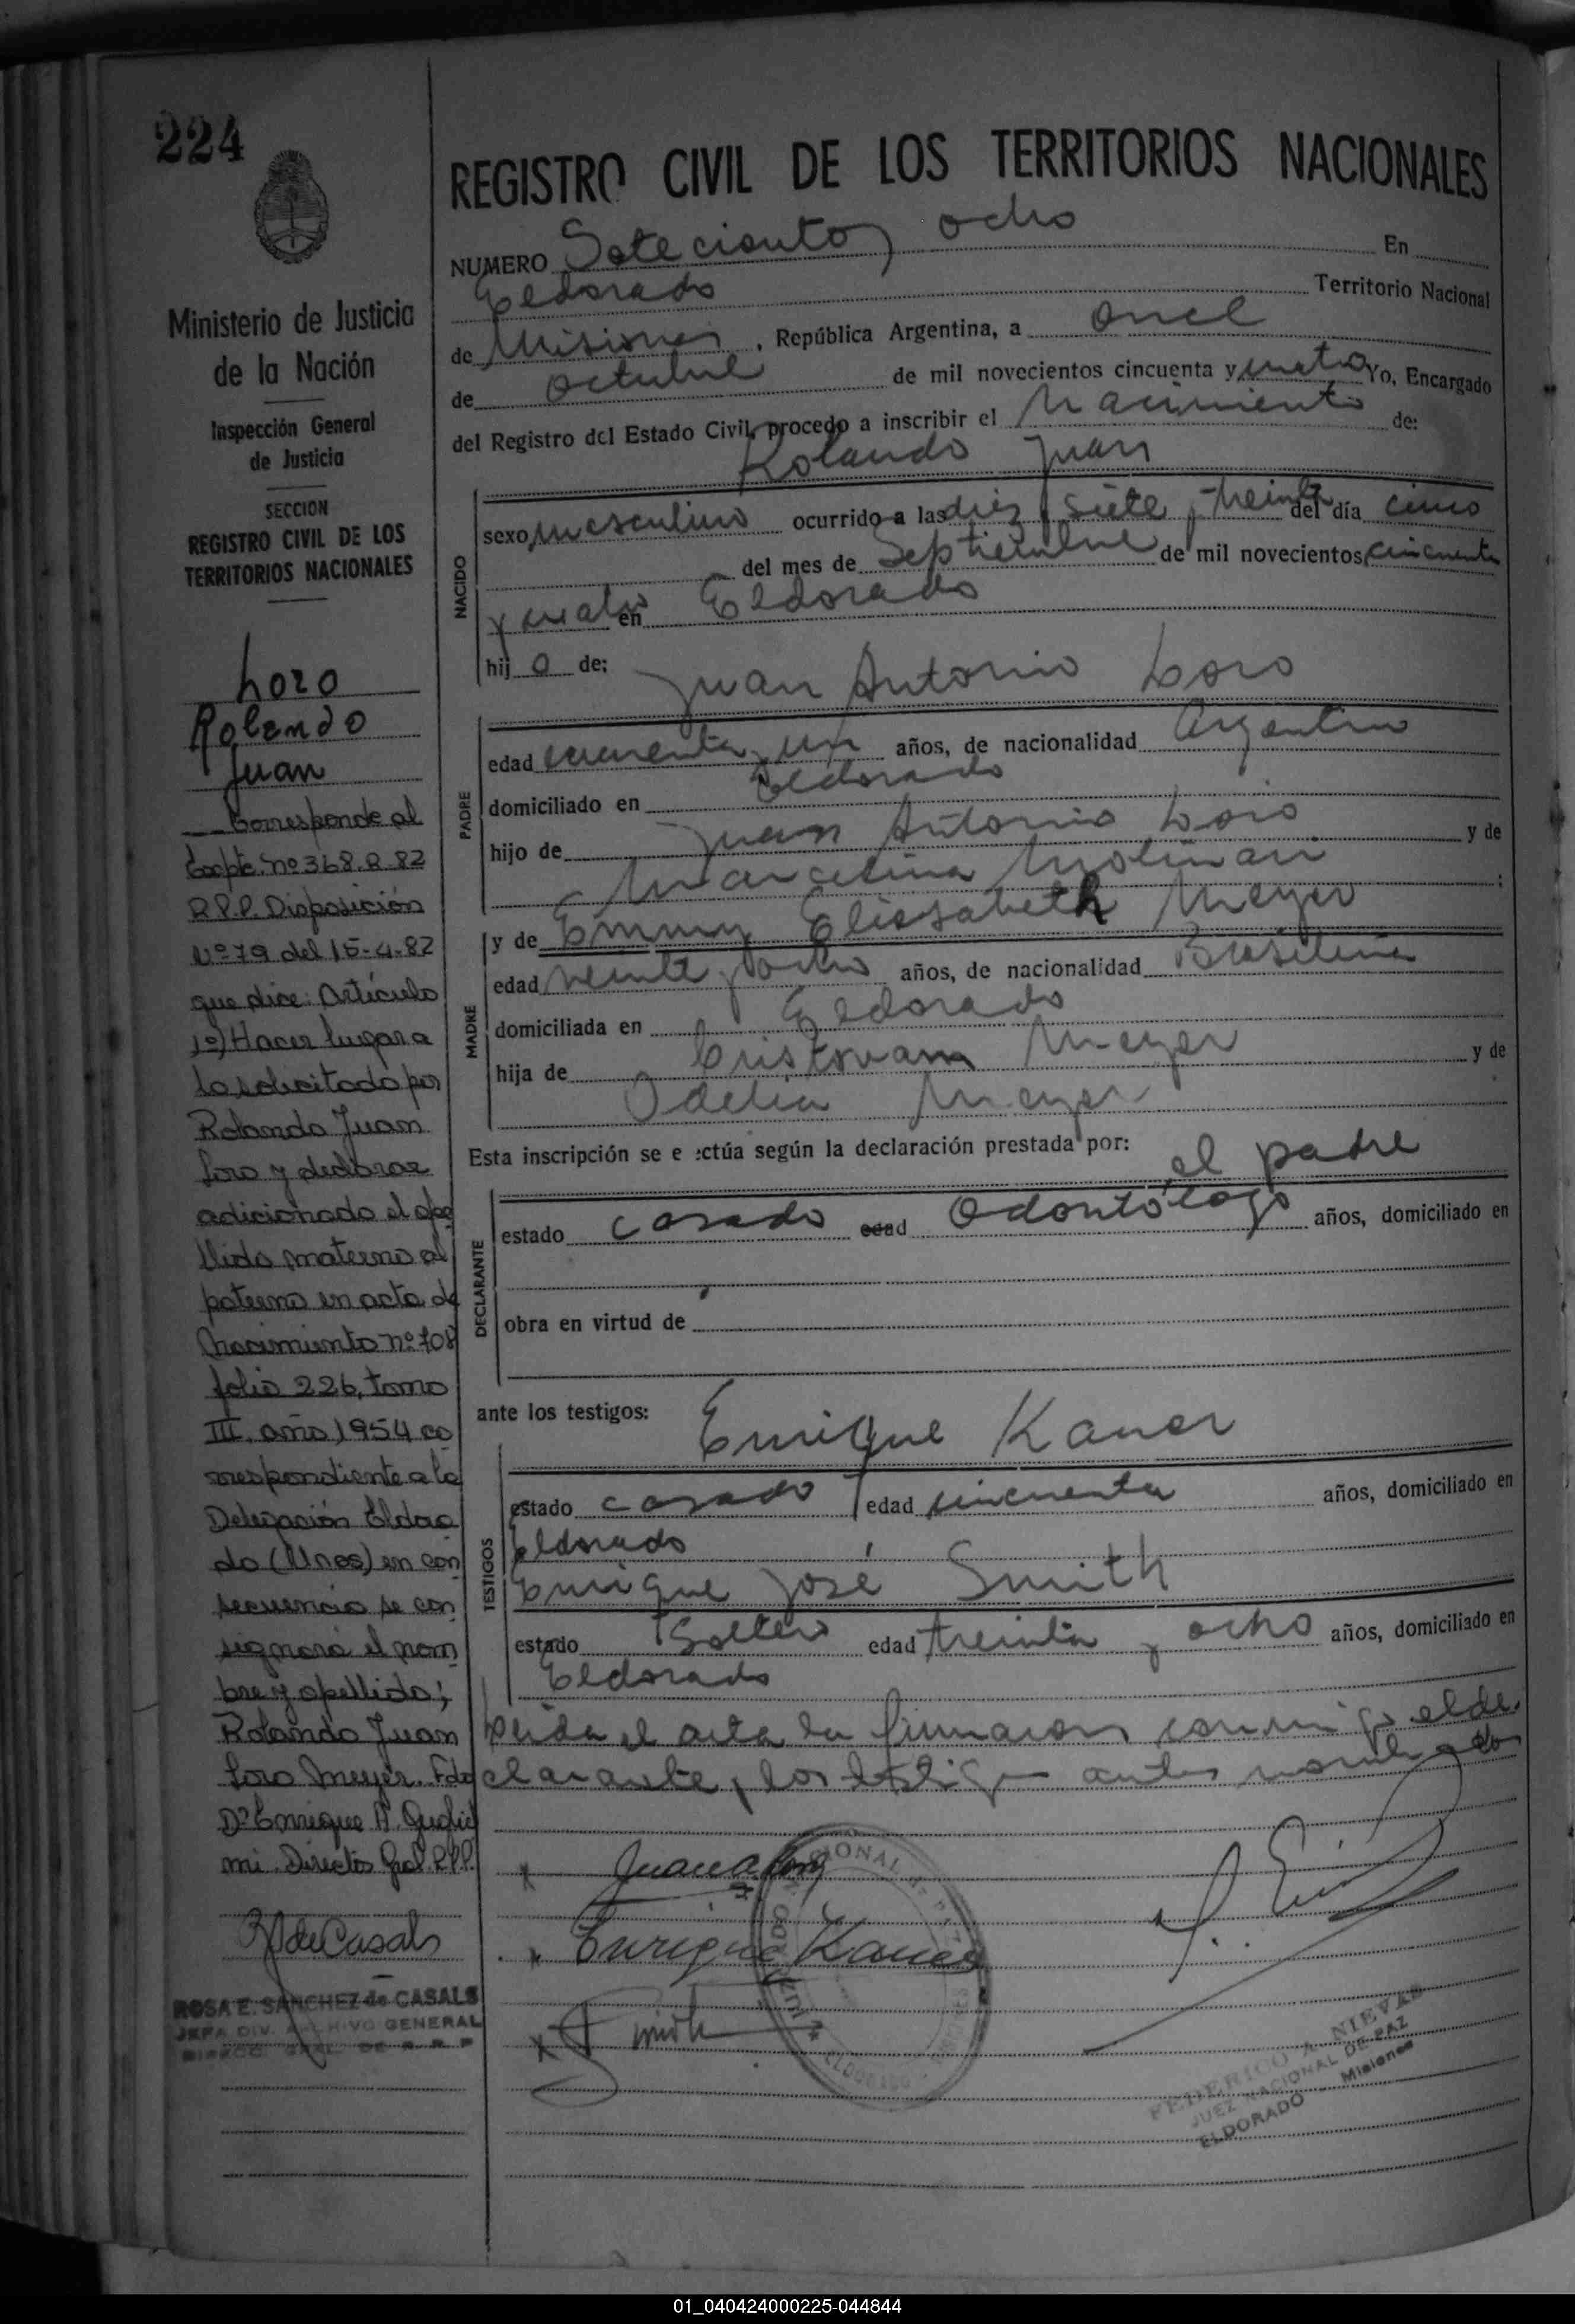 224
Ministerio de Justicia
de la Nación
Inspección General
de Justicia
SECCION
REGISTRO CIVIL DE LOS
TERRITORIOS NACIONALES
Loro
Rolando
Juan
Corresponde al
Expte. nº 368.R.82
R.P.P. Disposición
Nº 79 del 15-4-82
que dice: Artículo
1º) Hacer lugar a
lo solicitado por
Rolando Juan
Loro y declarar
adicionado el ape
llido materno al
paterno en acta de
Nacimiento nº 708
folio 226, tomo
III. año 1954 co
rrespondiente a la
Delegación Eldora
do (Mnes) en con
secuencia se con
signará el nom
bre y apellido;
Rolando Juan
Loro Meyer. Fdo
Dº Enrique A.
mi. Director Gral. R.P.P.
R de Casals
ROSA E. SANCHEZ de CASALS
JEFA DIV. ARCHIVO GENERAL
DIRECC. GRAL. DE R. R. P
REGISTRO CIVIL DE LOS TERRITORIOS NACIONALES
NUMERO Setecientos ocho En
Eldorado Territorio Nacional
de Misiones, República Argentina, a once
de octubre de mil novecientos cincuenta y cuatro Yo, Encargado
del Registro del Estado Civil, procedo a inscribir el Nacimiento de:
Rolando Juan
NACIDO
sexo masculino ocurrido a las diez y siete y treinta del día cinco
del mes de Septiembre de mil novecientos cincuenta
y cuatro en Eldorado
hij o de: Juan Antonio Loro
PADRE
edad cuarenta y un años, de nacionalidad Argentina
domiciliado en Eldorado
hijo de Juan Antonio Loro y de
Marcelina Molinari ;
y de Emmy Elissabeth Meyer
MADRE
edad veinte y ocho años, de nacionalidad Brasilena
domiciliada en Eldorado
hija de Cristovam Meyer y de
Odelia Meyer
Esta inscripción se e ectúa según la declaración prestada por: el padre
DECLARANTE
estado casado edad Odontólogo años, domiciliado en
obra en virtud de
ante los testigos: Enrique Kaner
TESTIGOS
estado casado edad cincuenta años, domiciliado en
Eldorado
Enrique José Smith
estado Soltero edad treinta y ocho años, domiciliado en
Eldorado
Leida el acta la firmaron conmigo el de
clarante y los testigos antes nombrados
Juan A. Loro
Enrique Kaner
Smith
FEDERICO A. NIEVAS
JUEZ NACIONAL DE PAZ
ELDORADO - Misiones
01_040424000225-044844